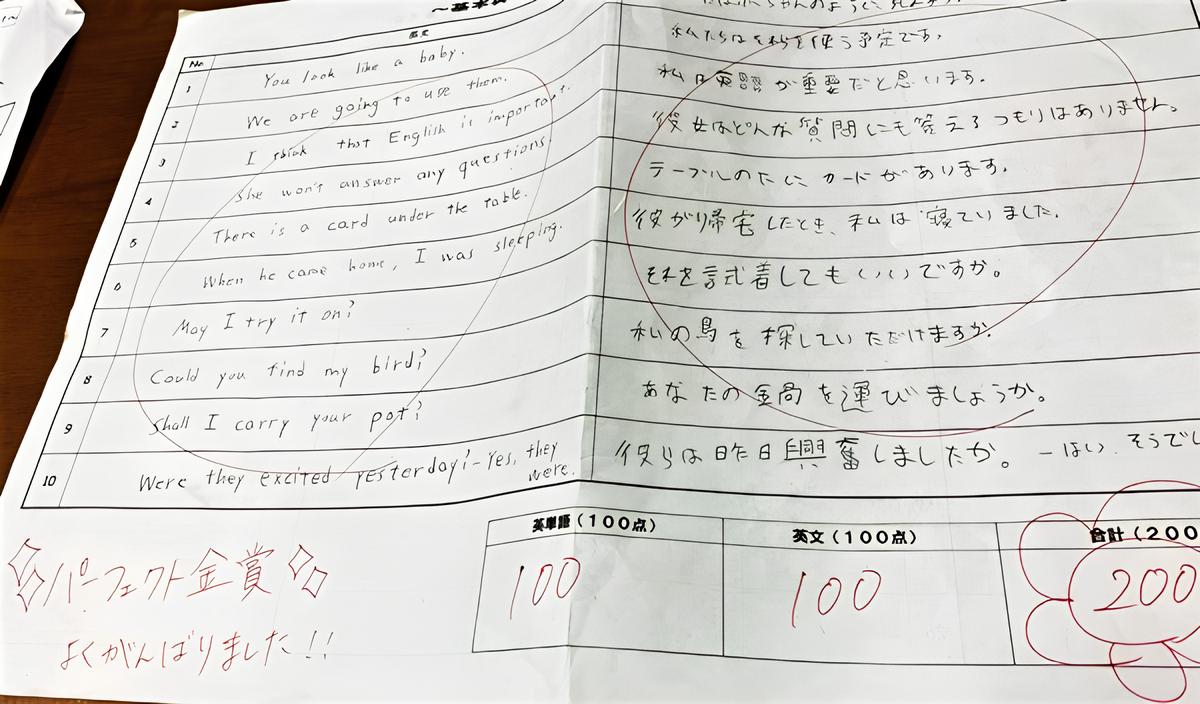 ～基本
No
1 You look like a baby. ちゃんのように見えます。
2 We are going to use them. 私たちはそれらを使う予定です。
3 I think that English is important. 私は英語が重要だと思います。
4 She won't answer any questions. 彼女はどんな質問にも答えるつもりはありません。
5 There is a card under the table. テーブルの下にカードがあります。
6 When he came home, I was sleeping. 彼が帰宅したとき、私は寝ていました。
7 May I try it on? それを試着してもいいですか。
8 Could you find my bird? 私の鳥を探していただけますか。
9 Shall I carry your pot? あなたの鍋を運びましょうか。
10 Were they excited yesterday?-Yes, they were. 彼らは昨日興奮しましたか。－はい、そうでし
英単語（１００点） 英文（１００点） 合計（２００
100 100 200
パーフェクト金賞
よくがんばりました!!